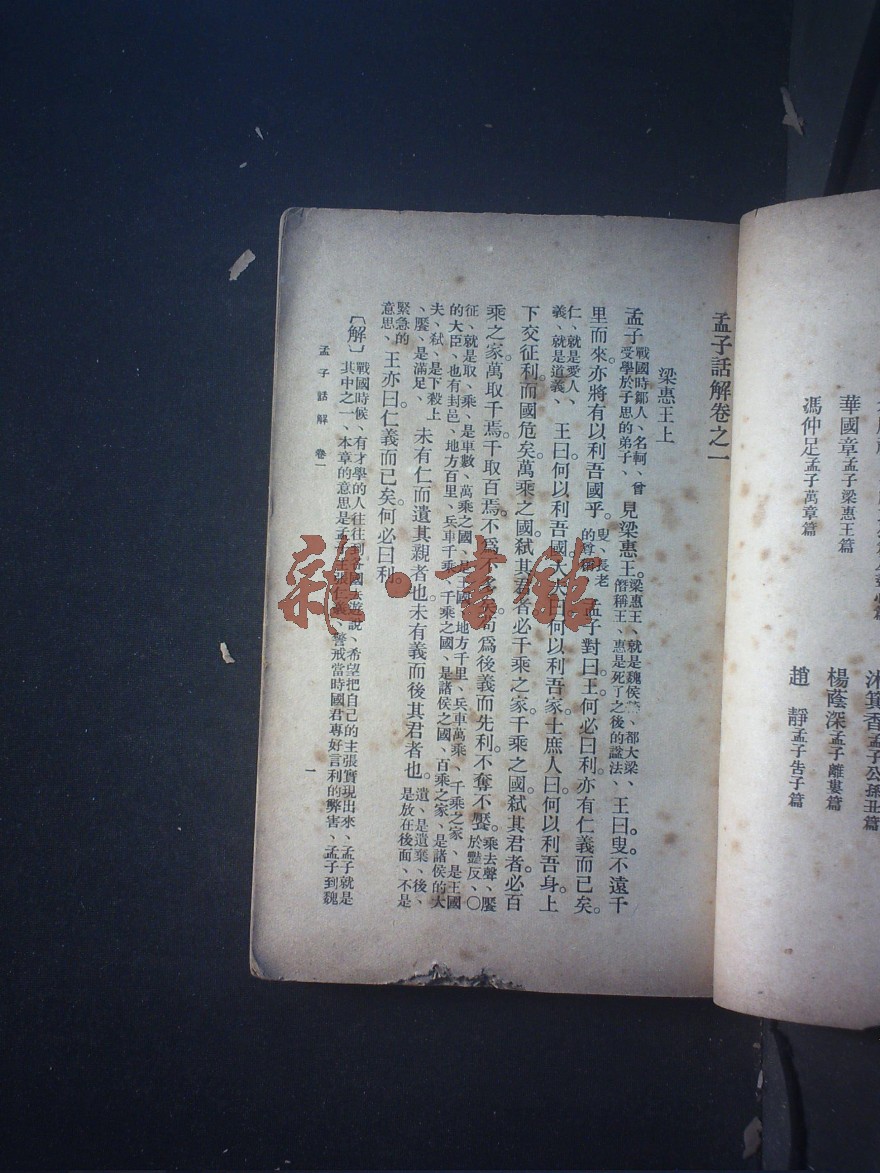 趙　靜孟子告子篇
楊蔭深孟子離婁篇
孟子公孫丑篇
馮仲足孟子萬章篇
華國章孟子梁惠王篇
孟子話解卷之一
梁惠王上
孟子戰國時鄒人、名軻、曾受學於子思的弟子、見梁惠王。梁惠王、就是魏侯、都大梁、僭稱王、惠是死了之後的諡法、王曰叟不遠千
里而來。亦將有以利吾國乎。叟、長老的尊稱孟子對曰。王何必曰利。亦有仁義而已矣。
仁、就是愛人、義、就是道義、王曰何以利吾國。大夫曰何以利吾家。士庶人曰何以利吾身。上
下交征利。而國危矣。萬乘之國。弒其君者。必千乘之家。千乘之國。弒其君者。必百
乘之家。萬取千焉。千取百焉。不爲不多矣。苟爲後義而先利。不奪不饜。乘去聲、饜於豔反、〇
征、就是取、乘、是車數、萬乘之國、是王國、地方千里、兵車萬乘、千乘之家、是王國
的大臣、也有封邑、地方百里、兵車千乘、千乘之國、是諸侯之國、百乘之家、是諸侯的大
夫、弒、是下殺上、饜、是滿足、未有仁而遺其親者也。未有義而後其君者也。遺、是遺棄、後、是放在後面、不是
緊急的意思、王亦曰仁義而已矣。何必曰利。
〔解〕戰國時候、有才學的人往往到各國去遊說、希望把自己的主張實現出來、孟子就是
其中之一、本章的意思是孟子主張仁義、警戒當時國君專好言利的弊害、孟子到魏
孟子話解　卷一
一
雜·書館